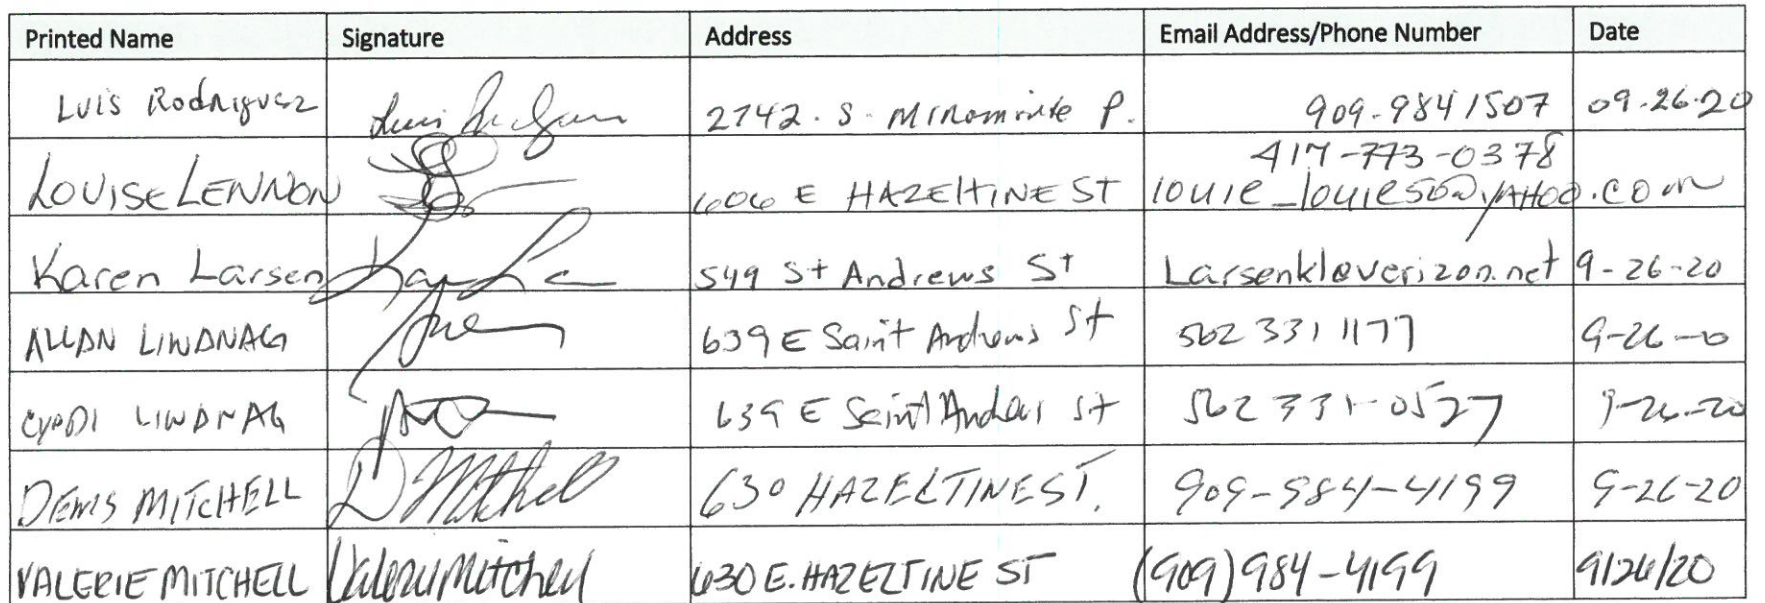 Printed Name Signature Address Email Address/Phone Number Date
Luis Rodriguez 2742. S. P. 909-984 1507 09-26-20
417-773-0378
LOUISE LENNON 606 E HAZELTINE ST louie_louie50@yAHOO.com
Karen Larsen 549 St Andrews St Larsenkl@verizon.net 9-26-20
ALLAN LINDNAG 639 E Saint Andrews St 562 331 1177
LINDNAG 639 E Saint St 562 331-0527 9-26-20
DENIS MITCHELL D Mitchell 630 HAZELTINE ST. 909-984-4199 9-26-20
VALERIE MITCHELL Valerie Mitchell 630 E. HAZELTINE ST (909) 984-4199 9/26/20